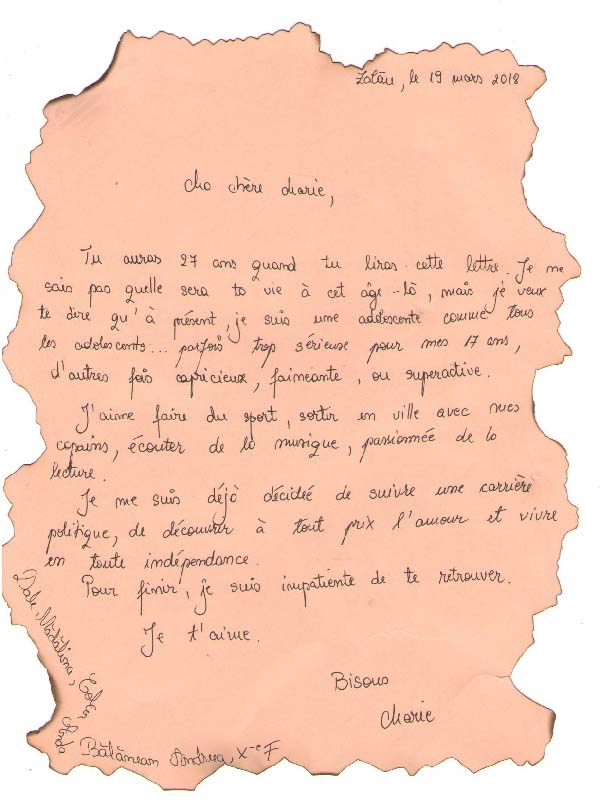 Zalău, le 19 mars 2018
Ma chère Marie,
Tu auras 27 ans quand tu liras cette lettre. Je me
sais pas quelle sera ta vie à cet âge-là, mais je veux
te dire qu'à présent, je suis une adolescente comme tous
les adolescents... parfois trop sérieuse pour mes 17 ans,
d'autres fois capricieux, faineante, ou superactive.
J'aime faire du sport, sortir en ville avec mes
copains, écouter de la musique, passionnée de la
lecture.
Je me suis déjà décidée de suivre une carrière
politique, de découvrir à tout prix l'amour et vivre
en toute indépendance.
Pour finir, je suis impatiente de te retrouver.
Je t'aime.
Bisous
Marie
Dale Mădălina,
Bălănean Andrea, X-ᵉ F